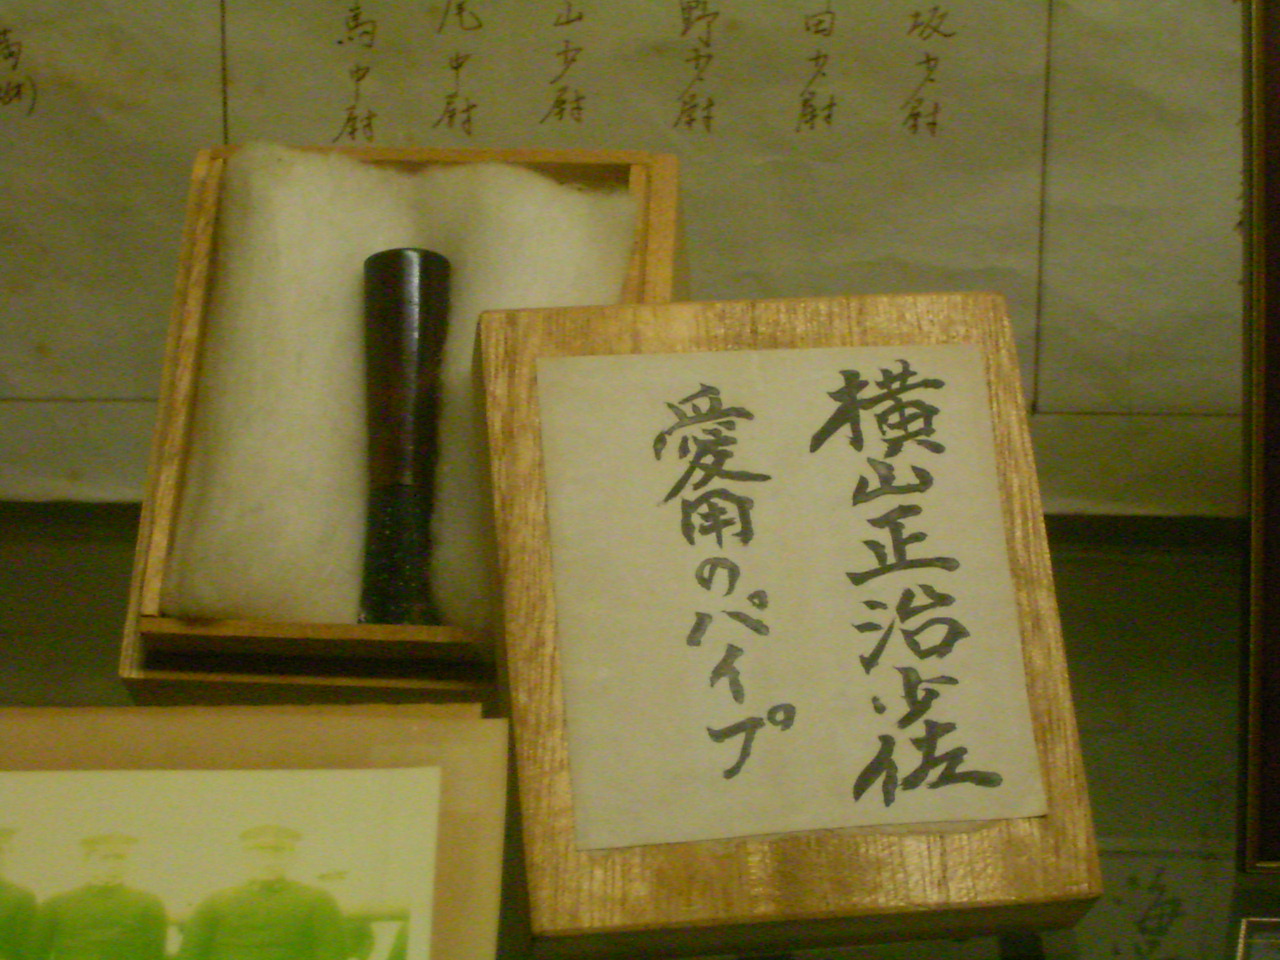 横山正治少佐
愛用のパイプ
坂少尉
田少尉
野少尉
山少尉
尾中尉
馬中尉
海